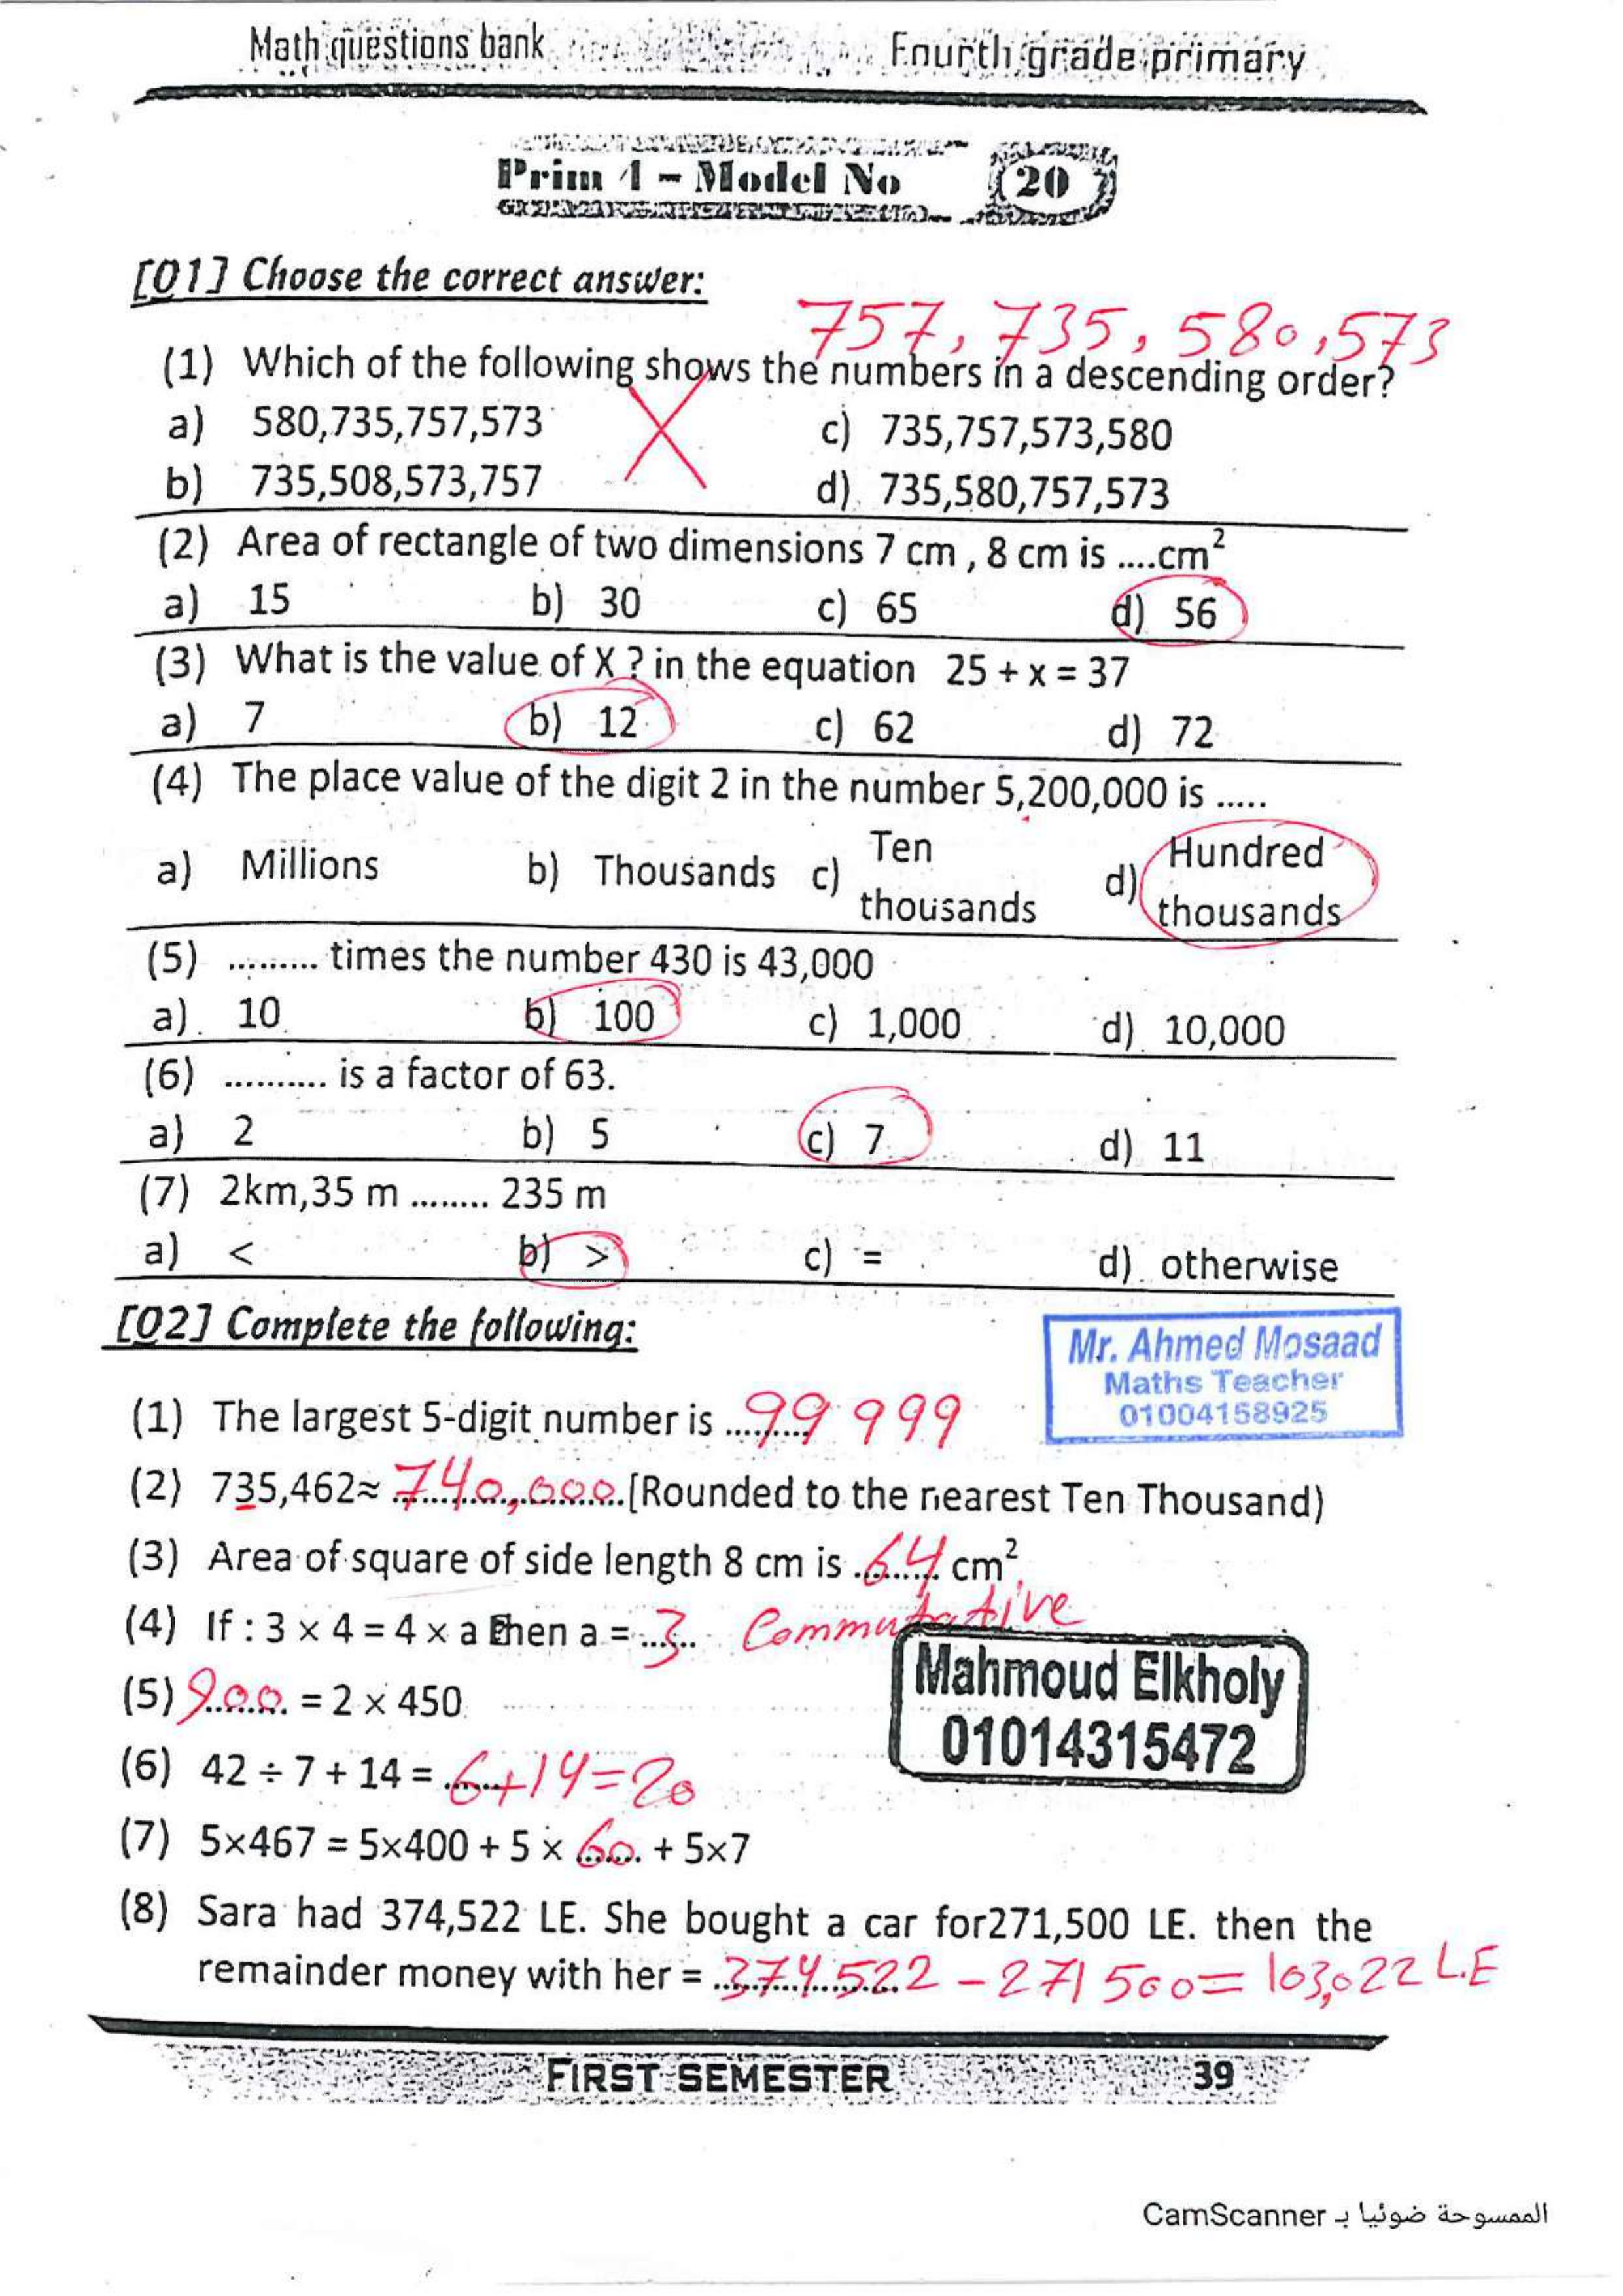 Math questions bank Fourth grade primary
Prim 4 - Model No 20
[Q1] Choose the correct answer:
757, 735, 580, 573
(1) Which of the following shows the numbers in a descending order?
a) 580,735,757,573 c) 735,757,573,580
b) 735,508,573,757 d) 735,580,757,573
(2) Area of rectangle of two dimensions 7 cm , 8 cm is ....cm²
a) 15 b) 30 c) 65 d) 56
(3) What is the value of X ? in the equation 25 + x = 37
a) 7 b) 12 c) 62 d) 72
(4) The place value of the digit 2 in the number 5,200,000 is .....
a) Millions b) Thousands c) Ten thousands d) Hundred thousands
(5) ......... times the number 430 is 43,000
a) 10 b) 100 c) 1,000 d) 10,000
(6) ........... is a factor of 63.
a) 2 b) 5 c) 7 d) 11
(7) 2km,35 m ........ 235 m
a) < b) > c) = d) otherwise
[Q2] Complete the following:
Mr. Ahmed Mosaad
Maths Teacher
01004158925
(1) The largest 5-digit number is 99 999
(2) 735,462≈ 740,000 [Rounded to the nearest Ten Thousand)
(3) Area of square of side length 8 cm is 64 cm²
(4) If : 3 × 4 = 4 × a then a = 3 Commutative
(5) 900 = 2 × 450
(6) 42 ÷ 7 + 14 = 6+14=20
(7) 5×467 = 5×400 + 5 × 60 + 5×7
Mahmoud Elkholy
01014315472
(8) Sara had 374,522 LE. She bought a car for271,500 LE. then the
remainder money with her = 374 522 - 271 500= 103,022 L.E
FIRST SEMESTER 39
الممسوحة ضوئيا بـ CamScanner